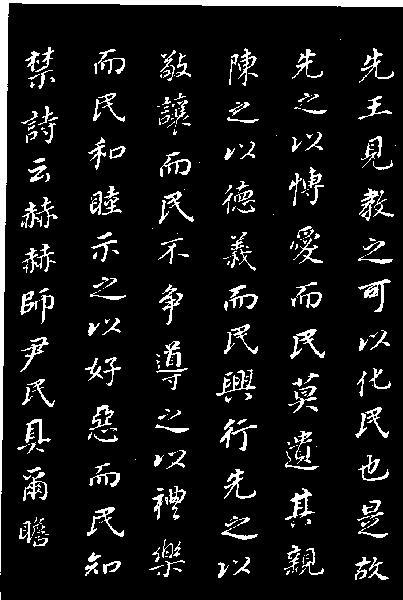 先王見教之可以化民也是故
先之以愽愛而民莫遺其親
陳之以德義而民興行先之以
敬讓而民不争導之以禮樂
而民和睦示之以好惡而民知
禁詩云赫赫師尹民具爾瞻